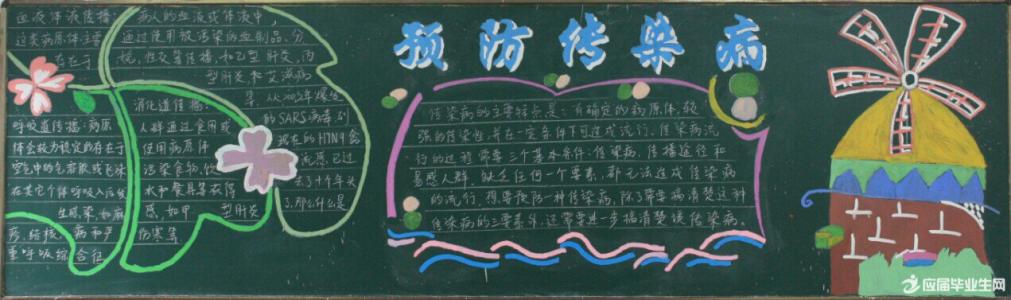 预防传染病
血液体液传播:
这类病原体主要
存在于
病人的血液或体液中,
通过使用被污染的血制品、分
娩,性交等传播,如乙型肝炎、丙
型肝炎和艾滋病
消化道传播:
人群通过食用或
使用病原体
污染食物、饮
水和餐具等获得
感,如甲 型肝炎
伤寒等
呼吸道传播:病原
体会较为稳定的存在于
空气中的
在其它个体呼吸入后发
生感染,如麻
病、结核、 病和严
重呼吸综合征
等,从2003年爆发
的SARS病毒,到
现在的H7N9禽
流感,已过
去了十个年头
了,那么什么是
传染病的主要特点是:有确定的病原体,较
强的传染性,并在一定条件下可造成流行。传染病流
行的过程需要三个基本条件:传染病,传播途径和
易感人群。缺乏任何一个要素,都无法造成传染病
的流行,想要预防一种传染病,除了需要搞清楚这种
传染病的三要素外,还需要进一步搞清楚该传染病。
应届毕业生网